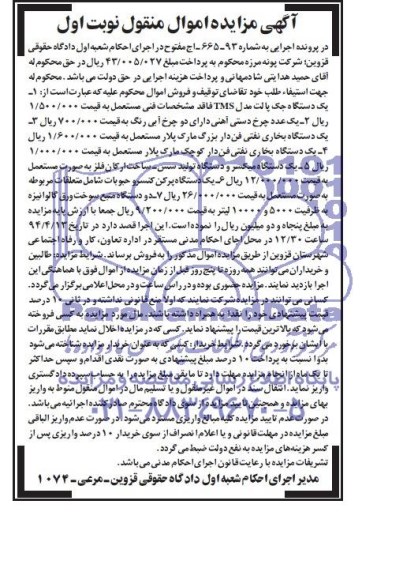 آگهی مزایده اموال منقول نوبت اول
در پرونده اجرایی به شماره ۹۳-۶۶۵-اج مفتوح در اجرای احکام شعبه اول دادگاه حقوقی
قزوین؛ شرکت پونه مرزه محکوم به پرداخت مبلغ ۴۳/۰۰۵/۰۲۷ ریال در حق محکوم له
آقای حمید هدایتی شادمهانی و پرداخت هزینه اجرایی در حق دولت می باشد. محکوم له
جهت استیفاء طلب خود تقاضای توقیف و فروش اموال محکوم علیه که عبارت است از: ۱-
یک دستگاه جک پالت مدل TMS فاقد مشخصات فنی مستعمل به قیمت ۱/۵۰۰/۰۰۰
ریال ۲-یک عدد چرخ دستی آهنی دارای دو چرخ آبی رنگ به قیمت ۷۰۰/۰۰۰ ریال ۳-
یک دستگاه بخاری نفتی فن دار بزرگ مارک پلار مستعمل به قیمت ۱/۶۰۰/۰۰۰ ریال
۴-یک دستگاه بخاری نفتی فن دار کوچک مارک پلار مستعمل به قیمت ۱/۰۰۰/۰۰۰
ریال ۵-یک دستگاه میکسر و دستگاه تولید سس-ساخت ارکان فلز به صورت مستعمل
به قیمت ۱۲/۰۰۰/۰۰۰ ریال ۶-یک دستگاه پرکن کنسرو حبوبات شامل متعلقات مربوطه
به صورت مستعمل به قیمت ۲۶/۰۰۰/۰۰۰ ریال ۷-دو دستگاه منبع سوخت ورق گالوانیزه
به ظرفیت ۵۰۰۰ و ۱۰۰۰۰ لیتر به قیمت ۹/۲۰۰/۰۰۰ ریال جمعا با ارزش پایه مزایده
به مبلغ پنجاه و دو میلیون ریال را نموده است. این اجرا قصد دارد در تاریخ ۹۴/۴/۱۳
ساعت ۱۲/۳۰ در محل اجای احکام مدنی مستقر در اداره تعاون، کار و رفاه اجتماعی
شهرستان قزوین از طریق مزایده اموال مذکور را به فروش برساند. شرایط مزایده: طالبین
و خریداران می توانند همه روزه تا پنج روز قبل از زمان مزایده از اموال فوق با هماهنگی این
اجرا بازدید نمایند. مزایده حضوری بوده و در راس ساعت و در محل اعلامی برگزار می گردد.
کسانی می توانند در مزایده شرکت نمایند که اولا منع قانونی نداشته و در ثانی ۱۰ درصد
قیمت پیشنهادی خود را نقدا به همراه داشته باشند. مال مورد مزایده به کسی فروخته
می شود که بالاترین قیمت را پیشنهاد نماید. کسی که در مزایده اخلال نماید مطابق مقررات
با ایشان برخورد می گردد. شرایط خریدار: کسی که به عنوان خریدار مزایده شناخته می شود
بدوا نسبت به پرداخت ۱۰ درصد مبلغ پیشنهادی به صورت نقدی اقدام و سپس حداکثر
تا یک ماه از انجام مزایده مهلت دارد تا مابقی مبلغ مزایده را به حساب سپرده دادگستری
واریز نماید. انتقال سند در اموال غیرمنقول و یا تسلیم مال در اموال منقول منوط به واریز
بهای مزایده و همچنین تایید مزایده از سوی دادگاه محترم صادرکننده اجرائیه می باشد.
در صورت عدم تایید مزایده کلیه مبالغ واریزی مسترد می شود. در صورت عدم واریز الباقی
مبلغ مزایده در مهلت قانونی و یا اعلام انصراف از سوی خریدار ۱۰ درصد واریزی پس از
کسر هزینه های مزایده به نفع دولت ضبط می گردد.
تشریفات مزایده با رعایت قانون اجرای احکام مدنی می باشد.
مدیر اجرای احکام شعبه اول دادگاه حقوقی قزوین-مرعی-۱۰۷۴
۰۲۱-۸۸۳۴۹۶۷۰-۵